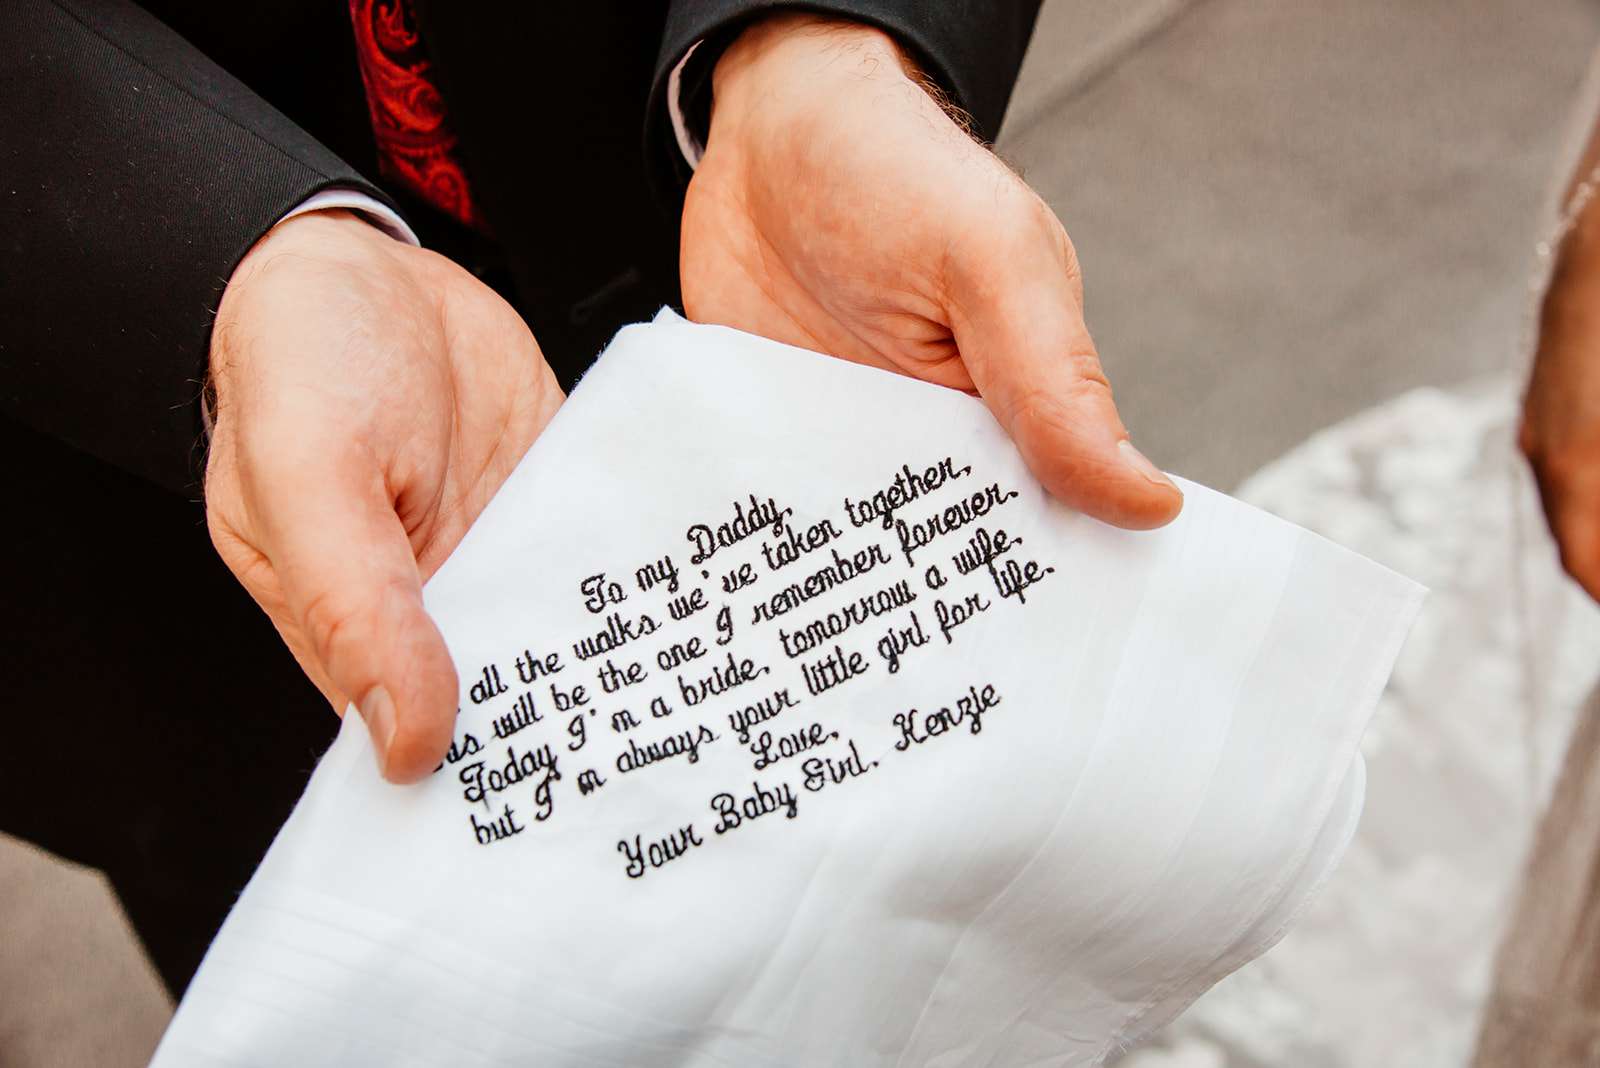 To my Daddy,
all the walks we've taken together,
will be the one I remember forever.
Today I'm a bride, tomorrow a wife,
but I'm always your little girl for life.
Love,
Your Baby Girl, Kenzie